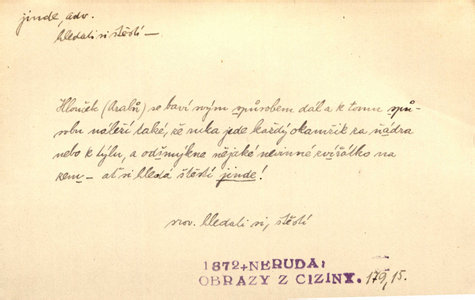 jinde, adv.
hledati si štěstí —
Hlouček (Arabů) se baví svým spůsobem dál a k tomu spů-
sobu náleží také, že ruka jede každý okamžik za ňádra
nebo k týlu, a odšmýkne nějaké nevinné zvířátko na
zem — ať si hledá štěstí jinde!
srov. hledati si, štěstí
1872+NERUDA:
OBRAZY Z CIZINY. 179, 15.